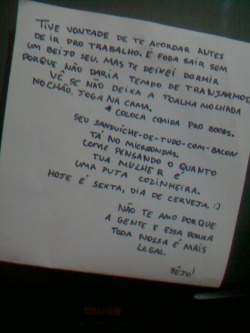 TIVE VONTADE DE TE ACORDAR ANTES
DE IR PRO TRABALHO. É FODA SAIR SEM
UM BEIJO SEU. MAS TE DEIXEI DORMIR
PORQUE NÃO DARIA TEMPO DE TRANSARMOS.
VÊ SE NÃO DEIXA A TOALHA MOLHADA
NO CHÃO. JOGA NA CAMA.
& COLOCA COMIDA PRO
SEU SANDUÍCHE-DE-TUDO-COM-BACON
TÁ NO MICROONDAS.
COME PENSANDO O QUANTO
TUA MULHER É
UMA PUTA COZINHEIRA.
HOJE É SEXTA, DIA DE CERVEJA. :)
NÃO TE AMO PORQUE
A GENTE É ESSA PORRA
TODA NOSSA É MAIS
LEGAL.
BÊJO!